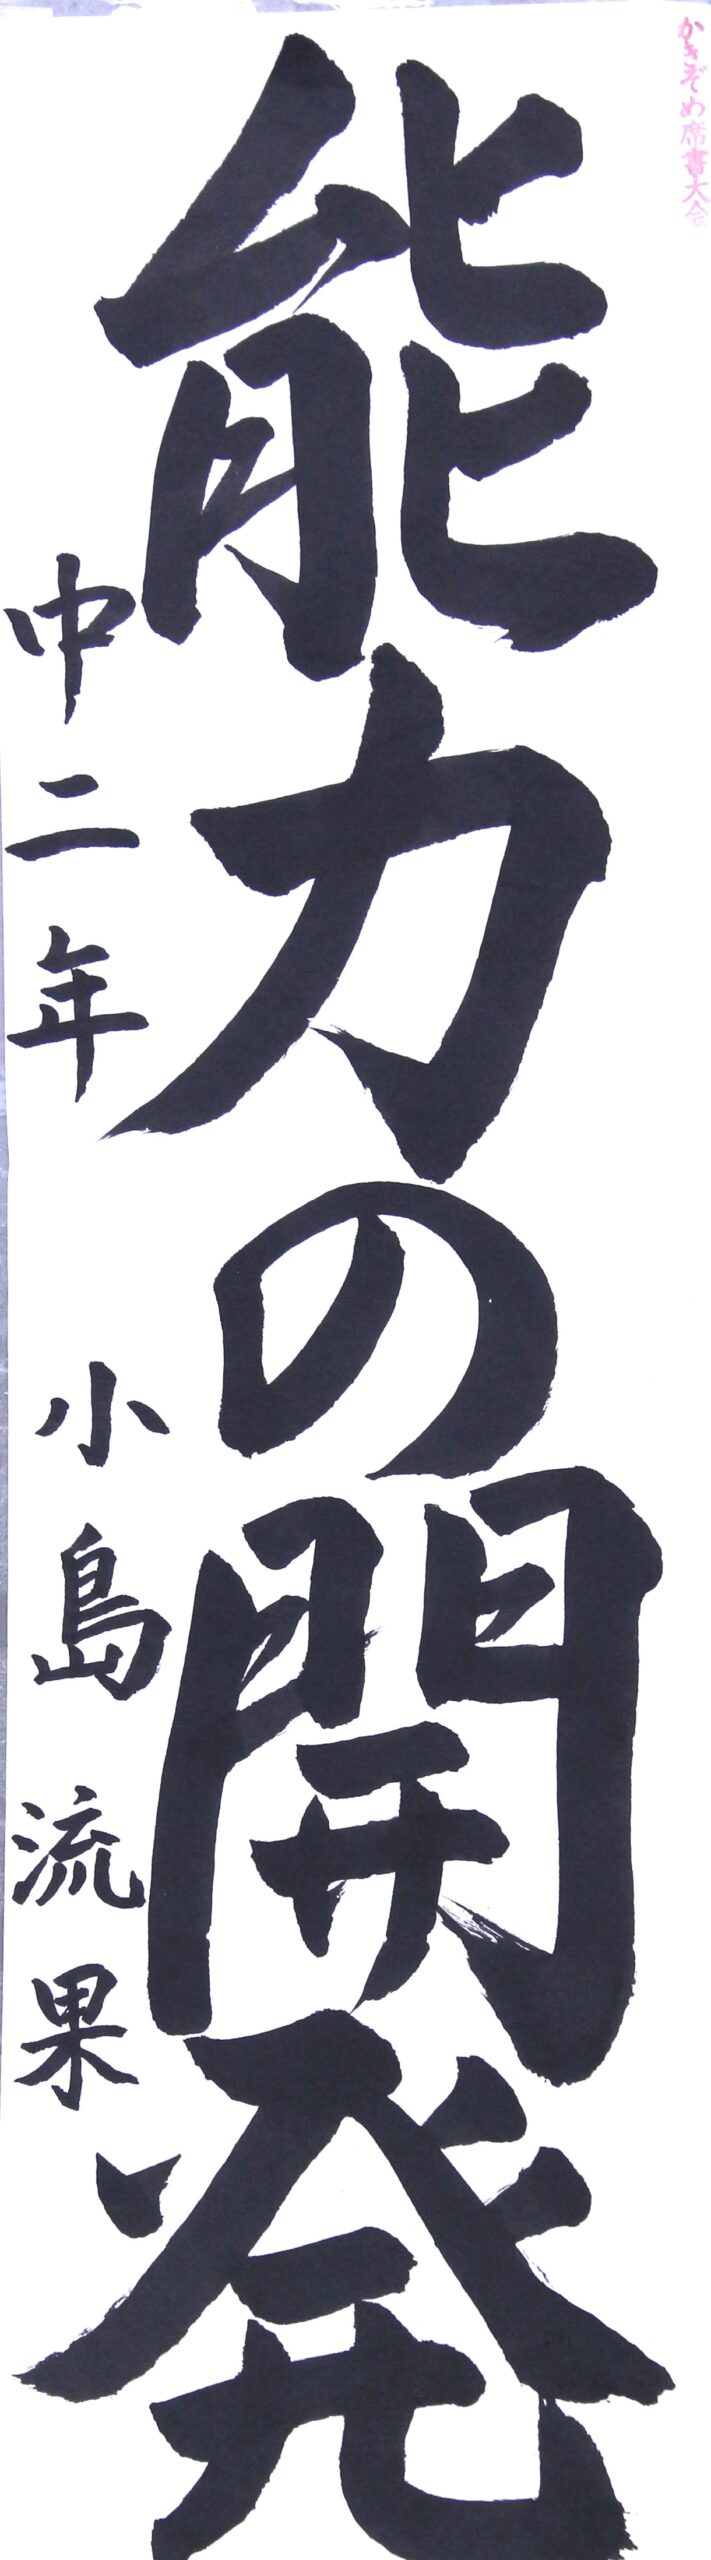 かきぞめ席書大会
能力の開発
中二年 小島流果